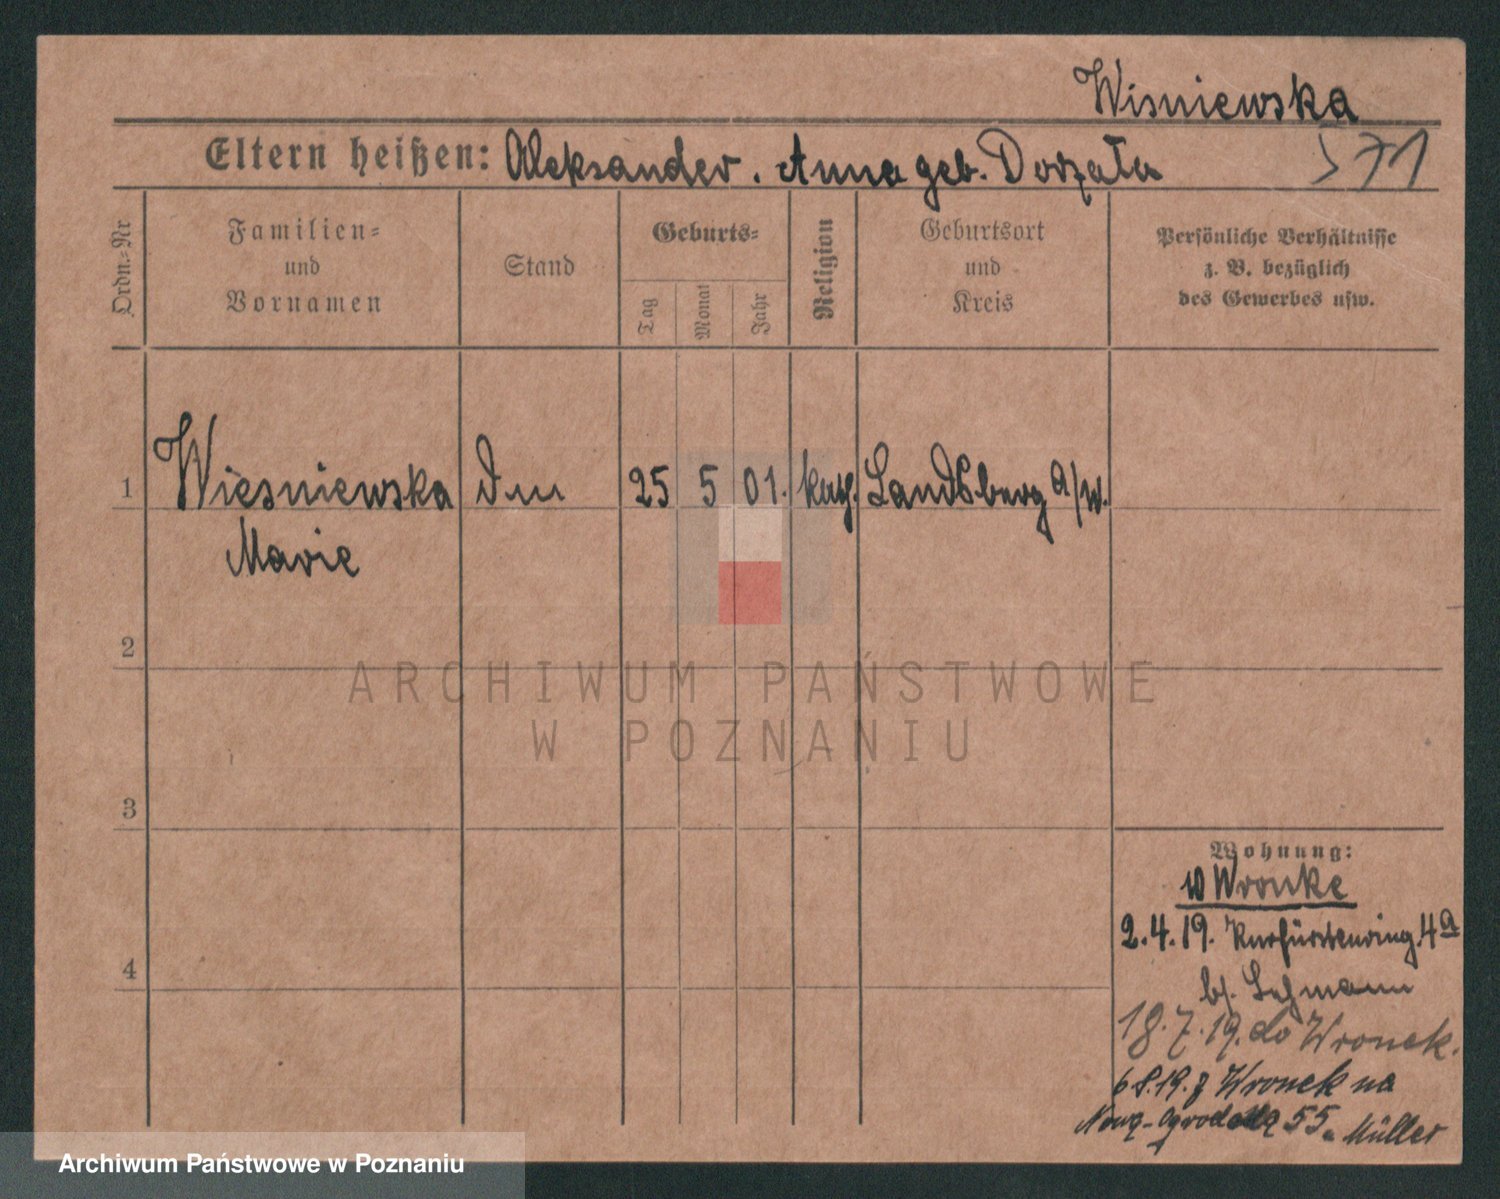 Wisniewska
Eltern heißen: Aleksander. Anna geb. Dorzata
571
Ordn.-Nr
Familien-
und
Vornamen
Stand
Geburts-
Tag
Monat
Jahr
Religion
Geburtsort
und
Kreis
Persönliche Verhältnisse
z. B. bezüglich
des Gewerbes usw.
1
Wiesniewska
25 5 01. kath. Landsberg a/W.
Marie
2
ARCHIWUM PAŃSTWOWE
W POZNANIU
3
Wohnung:
Wronke
2.4.19. Kurfürstenring 4a
b/. Lehmann
18.7.19. do Wronek.
6 8.19. z Wronek na
55 Müller
4
Archiwum Państwowe w Poznaniu